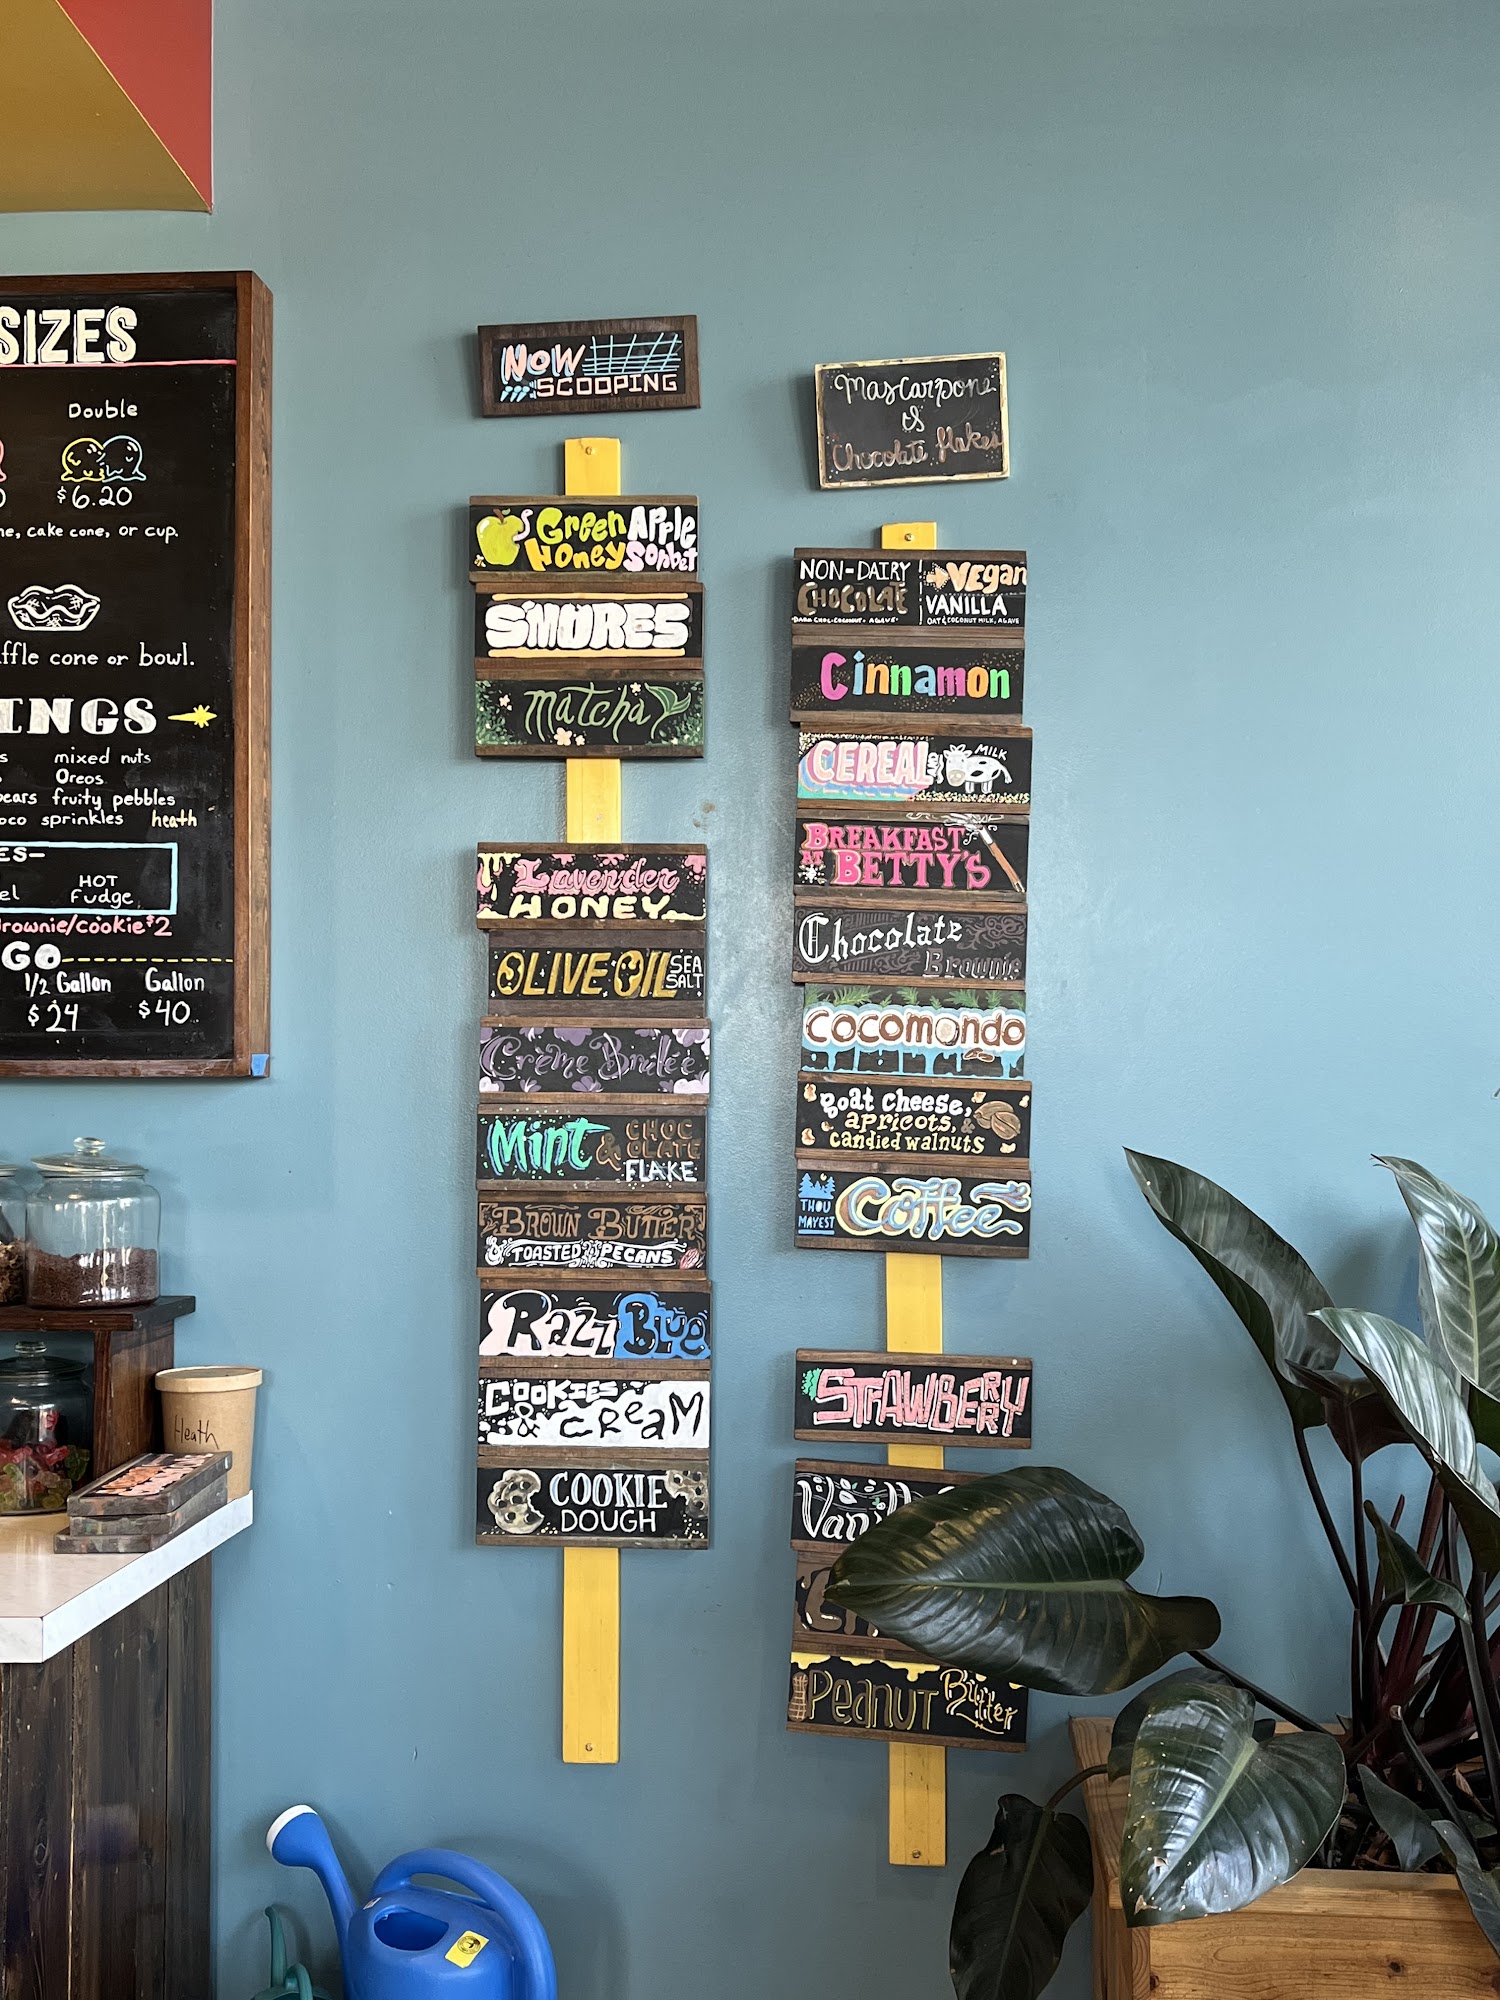 SIZES
Double
$6.20
cake cone, or cup.
cone or bowl.
mixed nuts
Oreos
fruity pebbles
sprinkles heath
HOT
Fudge
/cookie $2
GO
1/2 Gallon Gallon
$24 $40
Heath
NOW
SCOOPING
Green Apple
Honey Sorbet
S'MORES
Matcha
Lavender
HONEY
OLIVE OIL SEA
SALT
Crème Brulée
Mint & CHOC
OLATE
FLAKE
BROWN BUTTER
TOASTED PECANS
RAZZ BLUE
COOKIES
& CREAM
COOKIE
DOUGH
Mascarpone
&
Chocolate flakes
NON-DAIRY
CHOCOLATE
DARK CHOC. COCONUT. AGAVE.
VEGAN
VANILLA
OAT & COCONUT MILK, AGAVE
Cinnamon
CEREAL MILK
BREAKFAST
AT BETTY'S
Chocolate
Brownie
COCOMONDO
goat cheese,
apricots, &
candied walnuts
THOU
MAYEST
Coffee
STRAWBERRY
Peanut Butter